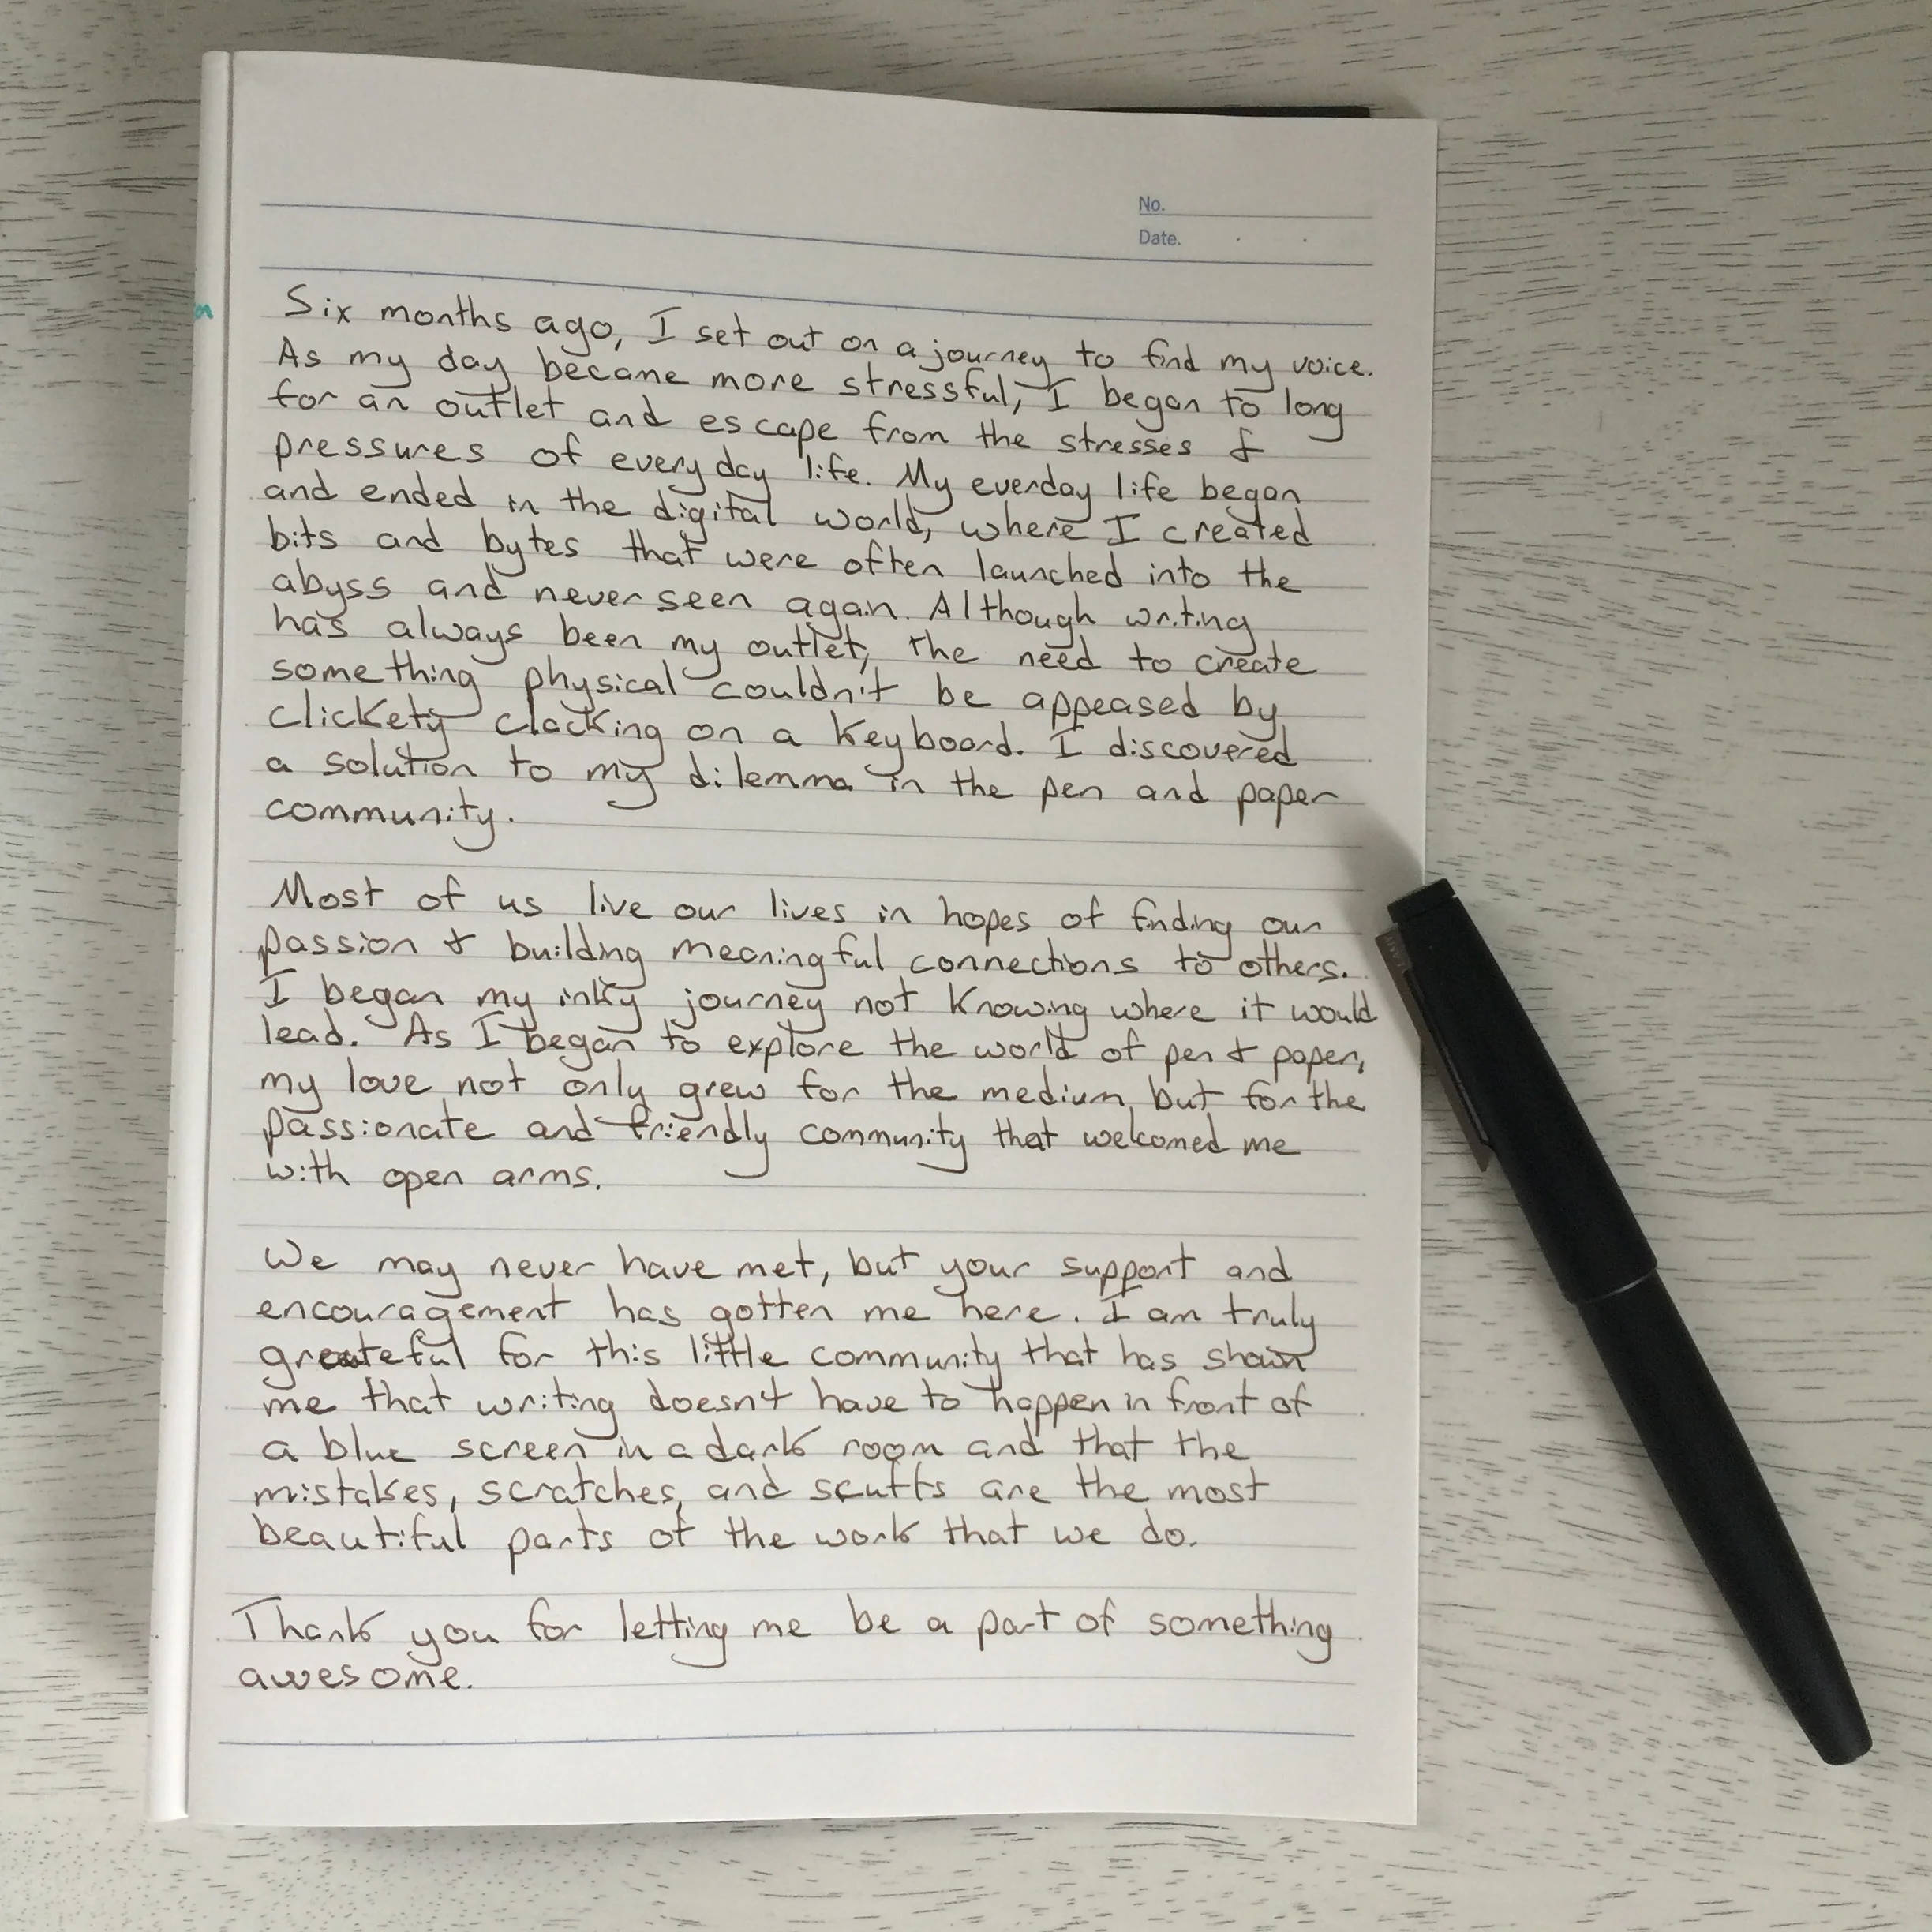 No.
Date. . .
Six months ago, I set out on a journey to find my voice.
As my day became more stressful, I began to long
for an outlet and escape from the stresses &
pressures of everyday life. My everday life began
and ended in the digital world, where I created
bits and bytes that were often launched into the
abyss and never seen again. Although writing
has always been my outlet, the need to create
something physical couldn't be appeased by
clickety clacking on a keyboard. I discovered
a solution to my dilemma in the pen and paper
community.
Most of us live our lives in hopes of finding our
passion & building meaningful connections to others.
I began my inky journey not knowing where it would
lead. As I began to explore the world of pen & paper,
my love not only grew for the medium, but for the
passionate and friendly community that welcomed me
with open arms.
We may never have met, but your support and
encouragement has gotten me here. I am truly
grateful for this little community that has shown
me that writing doesn't have to happen in front of
a blue screen in a dark room and that the
mistakes, scratches, and scuffs are the most
beautiful parts of the work that we do.
Thank you for letting me be a part of something
awesome.
LAMY